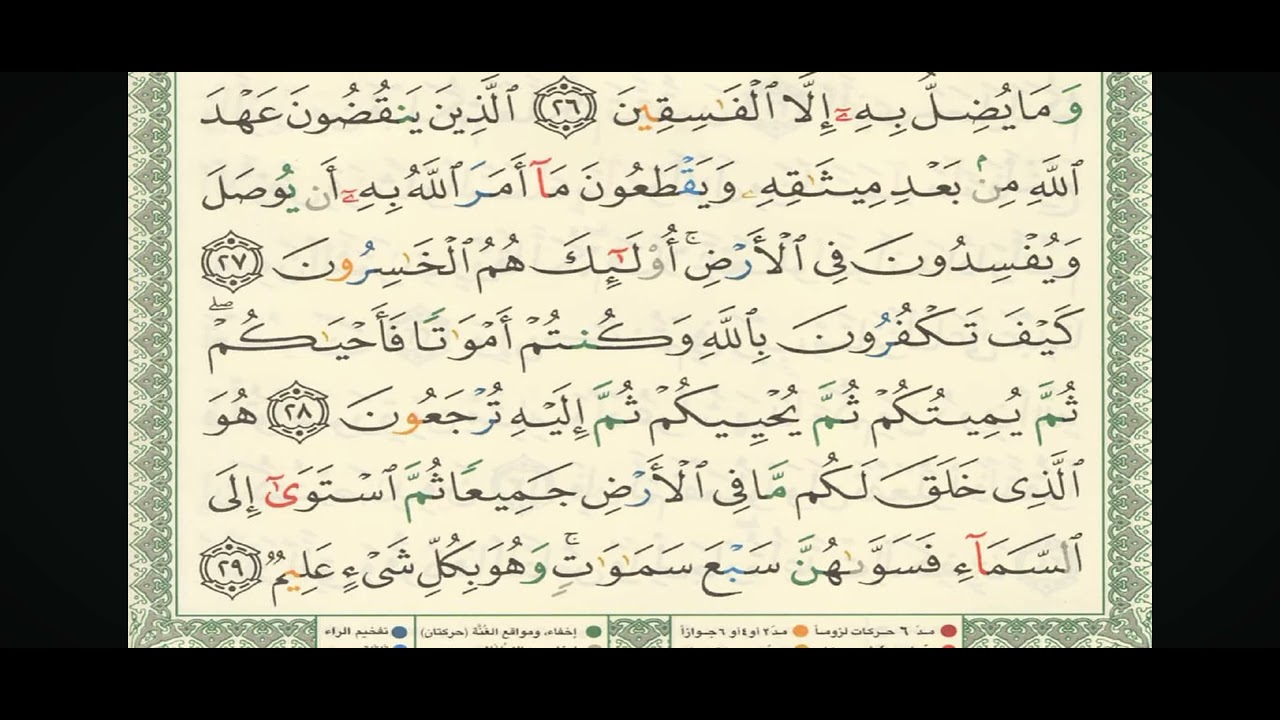 وَمَا يُضِلُّ بِهِۦٓ إِلَّا ٱلْفَٰسِقِينَ ٢٦ ٱلَّذِينَ يَنقُضُونَ عَهْدَ
ٱللَّهِ مِنۢ بَعْدِ مِيثَٰقِهِۦ وَيَقْطَعُونَ مَآ أَمَرَ ٱللَّهُ بِهِۦٓ أَن يُوصَلَ
وَيُفْسِدُونَ فِى ٱلْأَرْضِ ۚ أُو۟لَٰٓئِكَ هُمُ ٱلْخَٰسِرُونَ ٢٧
كَيْفَ تَكْفُرُونَ بِٱللَّهِ وَكُنتُمْ أَمْوَٰتًا فَأَحْيَٰكُمْ ۖ
ثُمَّ يُمِيتُكُمْ ثُمَّ يُحْيِيكُمْ ثُمَّ إِلَيْهِ تُرْجَعُونَ ٢٨ هُوَ
ٱلَّذِى خَلَقَ لَكُم مَّا فِى ٱلْأَرْضِ جَمِيعًا ثُمَّ ٱسْتَوَىٰٓ إِلَى
ٱلسَّمَآءِ فَسَوَّىٰهُنَّ سَبْعَ سَمَٰوَٰتٍ ۚ وَهُوَ بِكُلِّ شَىْءٍ عَلِيمٌ ٢٩
مدّ ٦ حركات لزوماً مدّ ٢ أو ٤ أو ٦ جوازاً إخفاء، ومواقع الغُنَّة (حركتان) تفخيم الراء